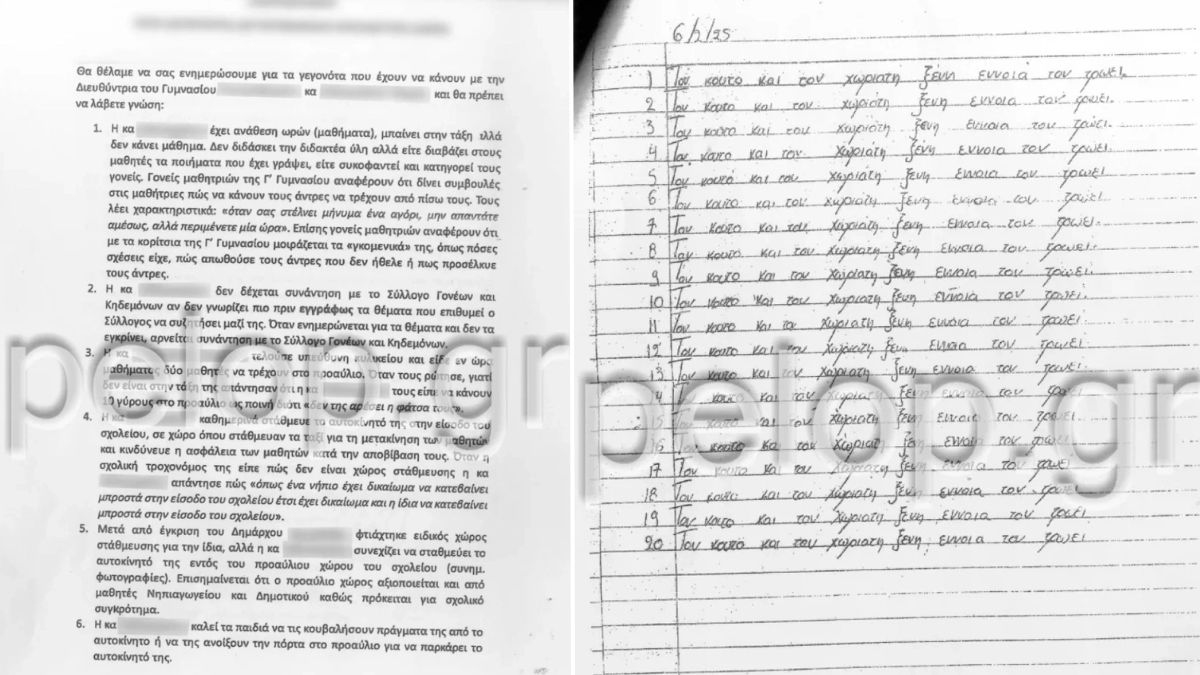 Θα θέλαμε να σας ενημερώσουμε για τα γεγονότα που έχουν να κάνουν με την
Διευθύντρια του Γυμνασίου κα και θα πρέπει
να λάβετε γνώση:
1. Η κα έχει ανάθεση ωρών (μαθήματα), μπαίνει στην τάξη αλλά
δεν κάνει μάθημα. Δεν διδάσκει την διδακτέα ύλη αλλά είτε διαβάζει στους
μαθητές τα ποιήματα που έχει γράψει, είτε συκοφαντεί και κατηγορεί τους
γονείς. Γονείς μαθητριών της Γ' Γυμνασίου αναφέρουν ότι δίνει συμβουλές
στις μαθήτριες πώς να κάνουν τους άντρες να τρέχουν από πίσω τους. Τους
λέει χαρακτηριστικά: «όταν σας στέλνει μήνυμα ένα αγόρι, μην απαντάτε
αμέσως, αλλά περιμένετε μία ώρα». Επίσης γονείς μαθητριών αναφέρουν ότι
με τα κορίτσια της Γ' Γυμνασίου μοιράζεται τα «γκομενικά» της, όπως πόσες
σχέσεις είχε, πώς απωθούσε τους άντρες που δεν ήθελε ή πως προσέλκυε
τους άντρες.
2. Η κα δεν δέχεται συνάντηση με το Σύλλογο Γονέων και
Κηδεμόνων αν δεν γνωρίζει πιο πριν εγγράφως τα θέματα που επιθυμεί ο
Σύλλογος να συζητήσει μαζί της. Όταν ενημερώνεται για τα θέματα και δεν τα
εγκρίνει, αρνείται συνάντηση με το Σύλλογο Γονέων και Κηδεμόνων.
3. Η κα τελούσε υπεύθυνη κυλικείου και είδε εν ώρα
μαθήματος δύο μαθητές να τρέχουν στο προαύλιο. Όταν τους ρώτησε, γιατί
δεν είναι στην τάξη της απάντησαν ότι η κα τους είπε να κάνουν
10 γύρους στο προαύλιο ως ποινή διότι «δεν της αρέσει η φάτσα τους».
4. Η κα καθημερινά στάθμευε το αυτοκίνητό της στην είσοδο του
σχολείου, σε χώρο όπου στάθμευαν τα ταξί για τη μετακίνηση των μαθητών
και κινδύνευε η ασφάλεια των μαθητών κατά την αποβίβαση τους. Όταν η
σχολική τροχονόμος της είπε πώς δεν είναι χώρος στάθμευσης η κα
απάντησε πώς «όπως ένα νήπιο έχει δικαίωμα να κατεβαίνει
μπροστά στην είσοδο του σχολείου έτσι έχει δικαίωμα και η ίδια να κατεβαίνει
μπροστά στην είσοδο του σχολείου».
5. Μετά από έγκριση του Δημάρχου φτιάχτηκε ειδικός χώρος
στάθμευσης για την ίδια, αλλά η κα συνεχίζει να σταθμεύει το
αυτοκίνητό της εντός του προαύλιου χώρου του σχολείου (συνημ.
φωτογραφίες). Επισημαίνεται ότι ο προαύλιος χώρος αξιοποιείται και από
μαθητές Νηπιαγωγείου και Δημοτικού καθώς πρόκειται για σχολικό
συγκρότημα.
6. Η κα καλεί τα παιδιά να τις κουβαλήσουν πράγματα της από το
αυτοκίνητο ή να της ανοίξουν την πόρτα στο προαύλιο για να παρκάρει το
αυτοκίνητό της.
pelop.gr
6/2/25
1 Τον κουτο και τον χωριατη ξένη εννοιά τον τρωει.
2 Τον κουτο και τον χωριάτη ξενη εννοια τον τρωει.
3 Τον κουτο και τον χωριάτη ξενη εννοια τον τρωει.
4 Τον κουτο και τον χωριάτη ξενη εννοια τον τρωει.
5 Τον κουτο και τον χωριάτη ξενη εννοια τον τρωει
6 Τον κουτο και τον χωριάτη ξενη εννοια τον τρωει.
7 Τον κουτο και τον χωριάτη ξενη εννοια τον τρωει.
8 Τον κουτο και τον χωριάτη ξενη εννοια τον τρωει.
9 Τον κουτο και τον χωριατη ξενη εννοια τον τρωει.
10 Τον κουτο και τον χωριατη ξενη εννοια τον τρωει.
11 Τον κουτο και τον χωριατη ξενη εννοια τον τρωει.
12 Τον κουτο και τον χωριατη ξενη εννοια τον τρωει.
13 Τον κουτο και τον χωριατη ξενη εννοια τον τρωει
14 Τον κουτο και τον χωριατη ξενη εννοια τον τρωει
15 Τον κουτο και τον χωριατη ξενη εννοια τον τρωει.
16 Τον κουτο και τον χωριατη ξενη εννοια τον τρωει
17 Τον κουτο και τον χωριατη ξενη εννοια τον τρωει
18 Τον κουτο και τον χωριατη ξενη εννοια τον τρωει
19 Τον κουτο και τον χωριατη ξενη εννοια τον τρωει
20 Τον κουτό και τον χωριατη ξενη εννοια τον τρωει
pelop.gr